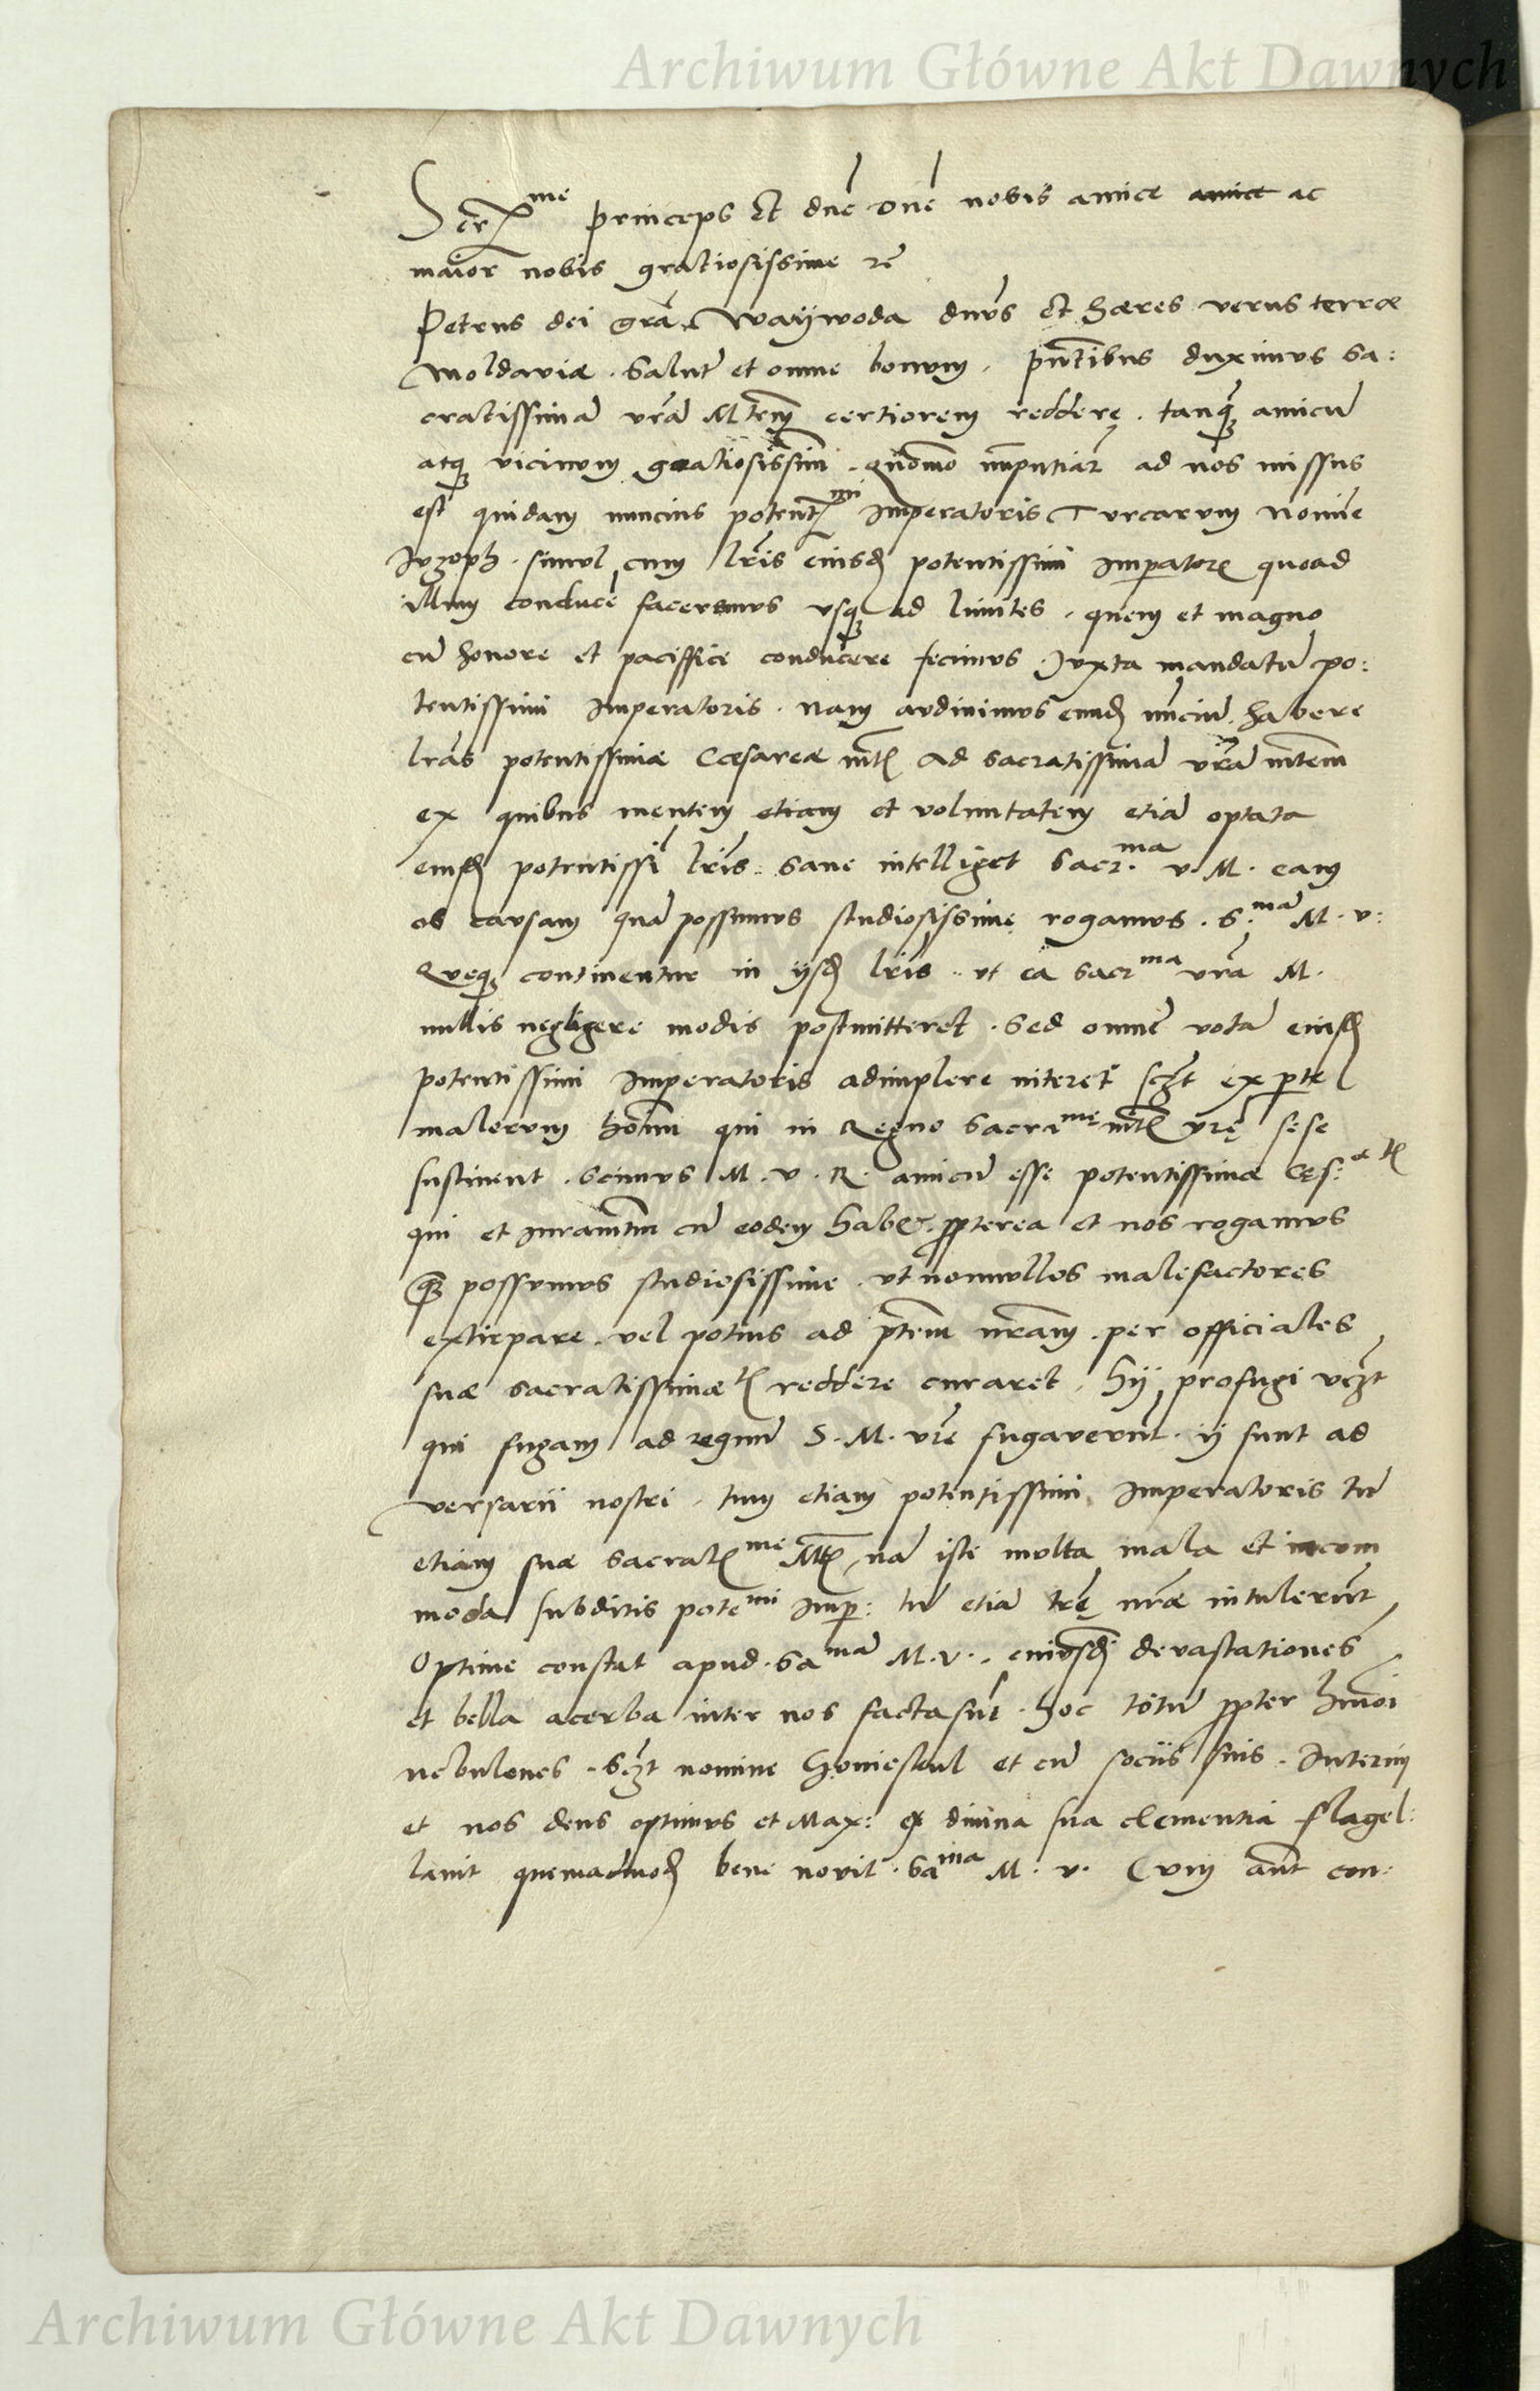 Archiwum Główne Akt Dawnych
Ser^me princeps Et dñe dñe nobis amice amice ac
maior nobis gratiosissime rē
Petrus dei grā Waÿwoda dnūs Et hæres verus terræ
Moldaviæ . Salutē et omne bonum . pñtibus duximus Sa:
cratissimā vrā Mtem certiorem reddere . tanq̃ amicū
atq; vicinum gratiosissimū . quōmo ad nos missus
est quidam nuncius potent^mi Imperatoris Turcarum nomine
simul cum lr̃is eiusd potentissimi Imperatoris quoad
illum conducē faceremus usq; ad limites . quem et magno
cū honore et paciffice conducere fecimus . Juxta mandatū po:
tentissimi Imperatoris . nam audivimus eund nūciū habere
lrās potentissimæ Cæsareæ mtis Ad Sacratissimā vrā mtem
ex quibus mentem etiam et voluntatem etiā optata
eiusd potentissi lr̃is . sane intelliget Sacr.^ma v M . eam
ob causam quā possumus studiosissime rogamus . S.^mā M . v:
Queq; continentur in ijsd lr̃is . ut ea Sacr^ma vrā M .
nullis negligere modis postmitteret . Sed omnē votā eiusd
potentissimi Imperatoris adimplere niteret sczt ex pte
malorum hoīm qui in Regno Sacra^me mtis vrę sese
sustinent . Scimus M . v . R . amicū esse potentissimæ Cęs:
qui et iuramtm cū eodem habet . ppterea et nos rogamus
q̃ possumus studiosissime . ut nonnullos malefactores
extirpare . vel potius ad ptem nram . per officiales
suæ sacratissimæ tis reddere curaret . hÿ profugi vczt
qui fugam ad regnū S . M . vrē fugaverūt . ij sunt ad
versarii nostri . tum etiam potentissimi Imperatoris tū
etiam suæ sacrat^me Mtis , nā iste multa mala et incom
moda subditis pote^mi Imp: tū etiā trę nræ intulerūt
Optime constat apud . Sa^mā M . v . . eiusd devastationes
et bella acerba inter nos facta sūt . hoc totū ppter hmōi
nebulones . sczt nomine et cū sociis suis . Interim
et nos deus optimus et Max: ex divina sua clementia flagel:
lavit quemadmod bene novit . Sa^ma M . v . Cum aūt con:
Archiwum Główne Akt Dawnych